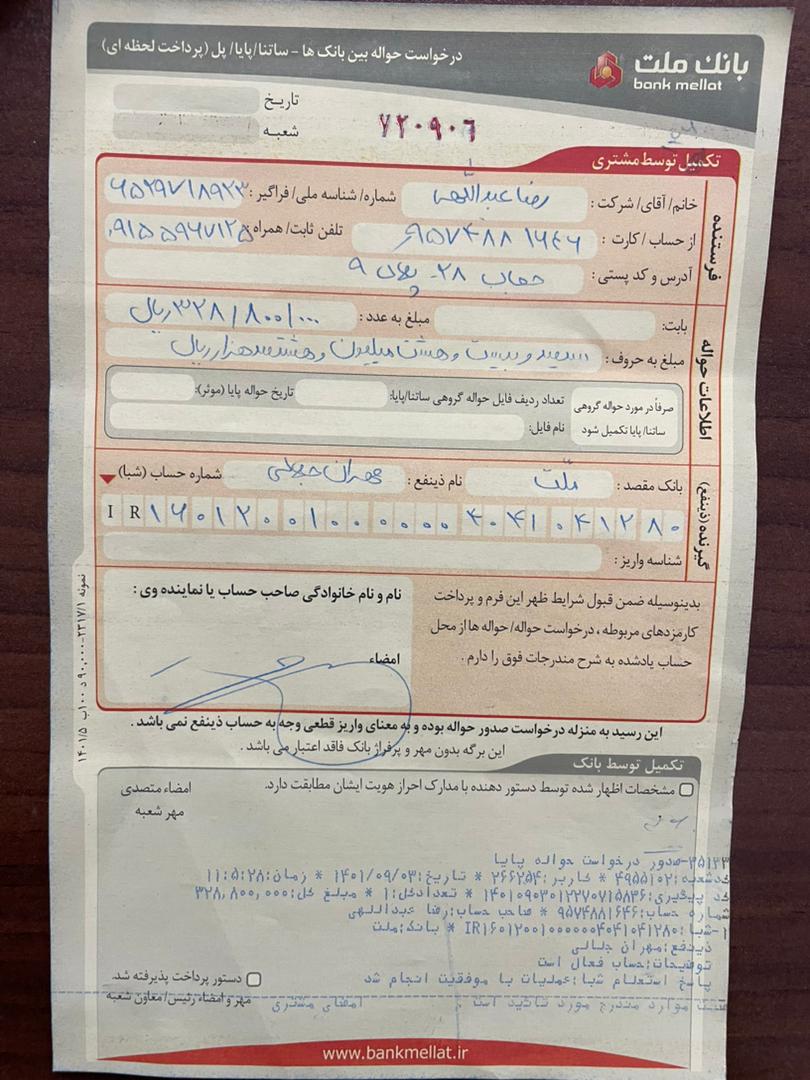 بانک ملت
bank mellat
درخواست حواله بین بانک ها - ساتنا/پایا/ پل (پرداخت لحظه ای)
تاریخ
شعبه
۷۲۰۹۰۶
تکمیل توسط مشتری
فرستنده
خانم/ آقای/ شرکت : رضا عبداللهی شماره/ شناسه ملی/ فراگیر : ۶۵۲۹۷۱۸۹۲۳
از حساب/ کارت : ۹۵۷۴۸۸۱۶۴۶ تلفن ثابت/ همراه : ۰۹۱۵۵۹۶۷۱۲۵
آدرس و کد پستی : حجاب ۲۸- پلاک ۹
اطلاعات حواله
بابت: مبلغ به عدد : ۳۲۸/۸۰۰/۰۰۰ ریال
مبلغ به حروف : سیصد و بیست و هشت میلیون و هشتصد هزار ریال
صرفاً در مورد حواله گروهی ساتنا/ پایا تکمیل شود
تعداد ردیف فایل حواله گروهی ساتنا/پایا: تاریخ حواله پایا (موثر):
نام فایل:
گیرنده (ذینفع)
بانک مقصد : ملّت نام ذینفع : مهران جلالی شماره حساب (شبا)
IR۱۶۰۱۲۰۰۱۰۰۰۰۰۰۴۰۴۱۰۴۱۲۸۰
شناسه واریز :
بدینوسیله ضمن قبول شرایط ظهر این فرم و پرداخت
کارمزدهای مربوطه ، درخواست حواله/ حواله ها از محل
حساب یادشده به شرح مندرجات فوق را دارم .
نام و نام خانوادگی صاحب حساب یا نماینده وی :
امضاء
این رسید به منزله درخواست صدور حواله بوده و به معنای واریز قطعی وجه به حساب ذینفع نمی باشد .
این برگه بدون مهر و پرفراژ بانک فاقد اعتبار می باشد .
نمونه ۲۳۱۷/۱-۹۰,۰۰۰ د ۱۰۰ب ۱۴۰۱/۵
تکمیل توسط بانک
مشخصات اظهار شده توسط دستور دهنده با مدارک احراز هویت ایشان مطابقت دارد.
امضاء متصدی
مهر شعبه
۳۵۱۲۳-صدور درخواست حواله پایا
کدشعبه:۴۹۵۵۱۰۲ * کاربر:۲۶۶۲۵۴ * تاریخ:۱۴۰۱/۰۹/۰۳ * زمان:۱۱:۵:۲۸
کد پیگیری:۱۴۰۱۰۹۰۳۰۱۲۲۷۰۷۱۵۸۳۶ * تعدادکل:۱ * مبلغ کل:۳۲۸,۸۰۰,۰۰۰
شماره حساب:۹۵۷۴۸۸۱۶۴۶ * صاحب حساب:رضا عبداللهی
۱-شبا:IR۱۶۰۱۲۰۰۱۰۰۰۰۰۰۴۰۴۱۰۴۱۲۸۰ * بانک:ملت
ذینفع:مهران جلالی
توضیحات:حساب فعال است
پاسخ استعلام شبا:عملیات با موفقیت انجام شد
صحت موارد مندرج مورد تائید است . امضای مشتری
دستور پرداخت پذیرفته شد.
مهر و امضاء رئیس/ معاون شعبه
www.bankmellat.ir